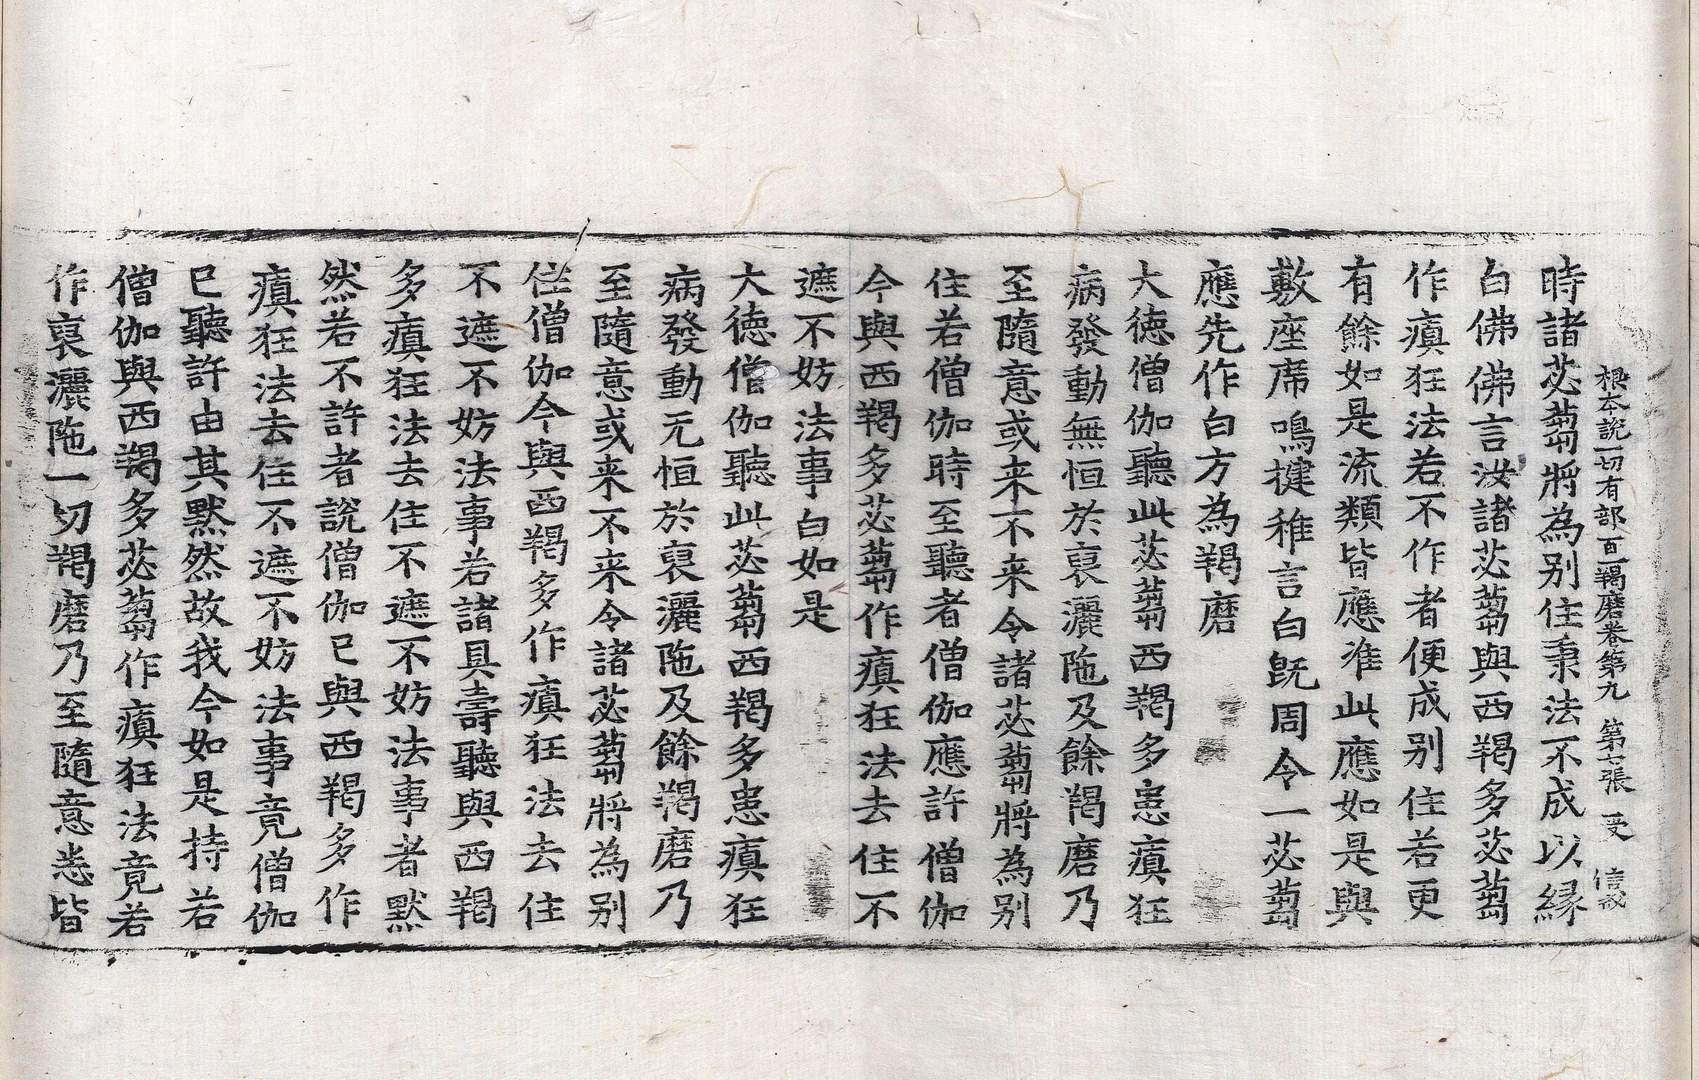 根本說一切有部百一羯磨卷第九 第七張 受 信敬
時諸苾蒭將為別住秉法不成以緣
白佛佛言汝諸苾蒭與西羯多苾蒭
作瘨狂法若不作者便成別住若更
有餘如是流類皆應准此應如是與
敷座席鳴揵稚言白旣周令一苾蒭
應先作白方為羯磨
大德僧伽聽此苾蒭西羯多患瘨狂
病發動無恒於裒灑陁及餘羯磨乃
至隨意或来不来令諸苾蒭將為別
住若僧伽時至聽者僧伽應許僧伽
今與西羯多苾蒭作瘨狂法去住不
遮不妨法事白如是
大德僧伽聽此苾蒭西羯多患瘨狂
病發動无恒於裒灑陁及餘羯磨乃
至隨意或来不来令諸苾蒭將為別
住僧伽今與西羯多作瘨狂法去住
不遮不妨法事若諸具壽聽與西羯
多瘨狂法去住不遮不妨法事者默
然若不許者說僧伽已與西羯多作
瘨狂法去住不遮不妨法事竟僧伽
已聽許由其默然故我今如是持若
僧伽與西羯多苾蒭作瘨狂法竟若
作裒灑陁一切羯磨乃至隨意悉皆